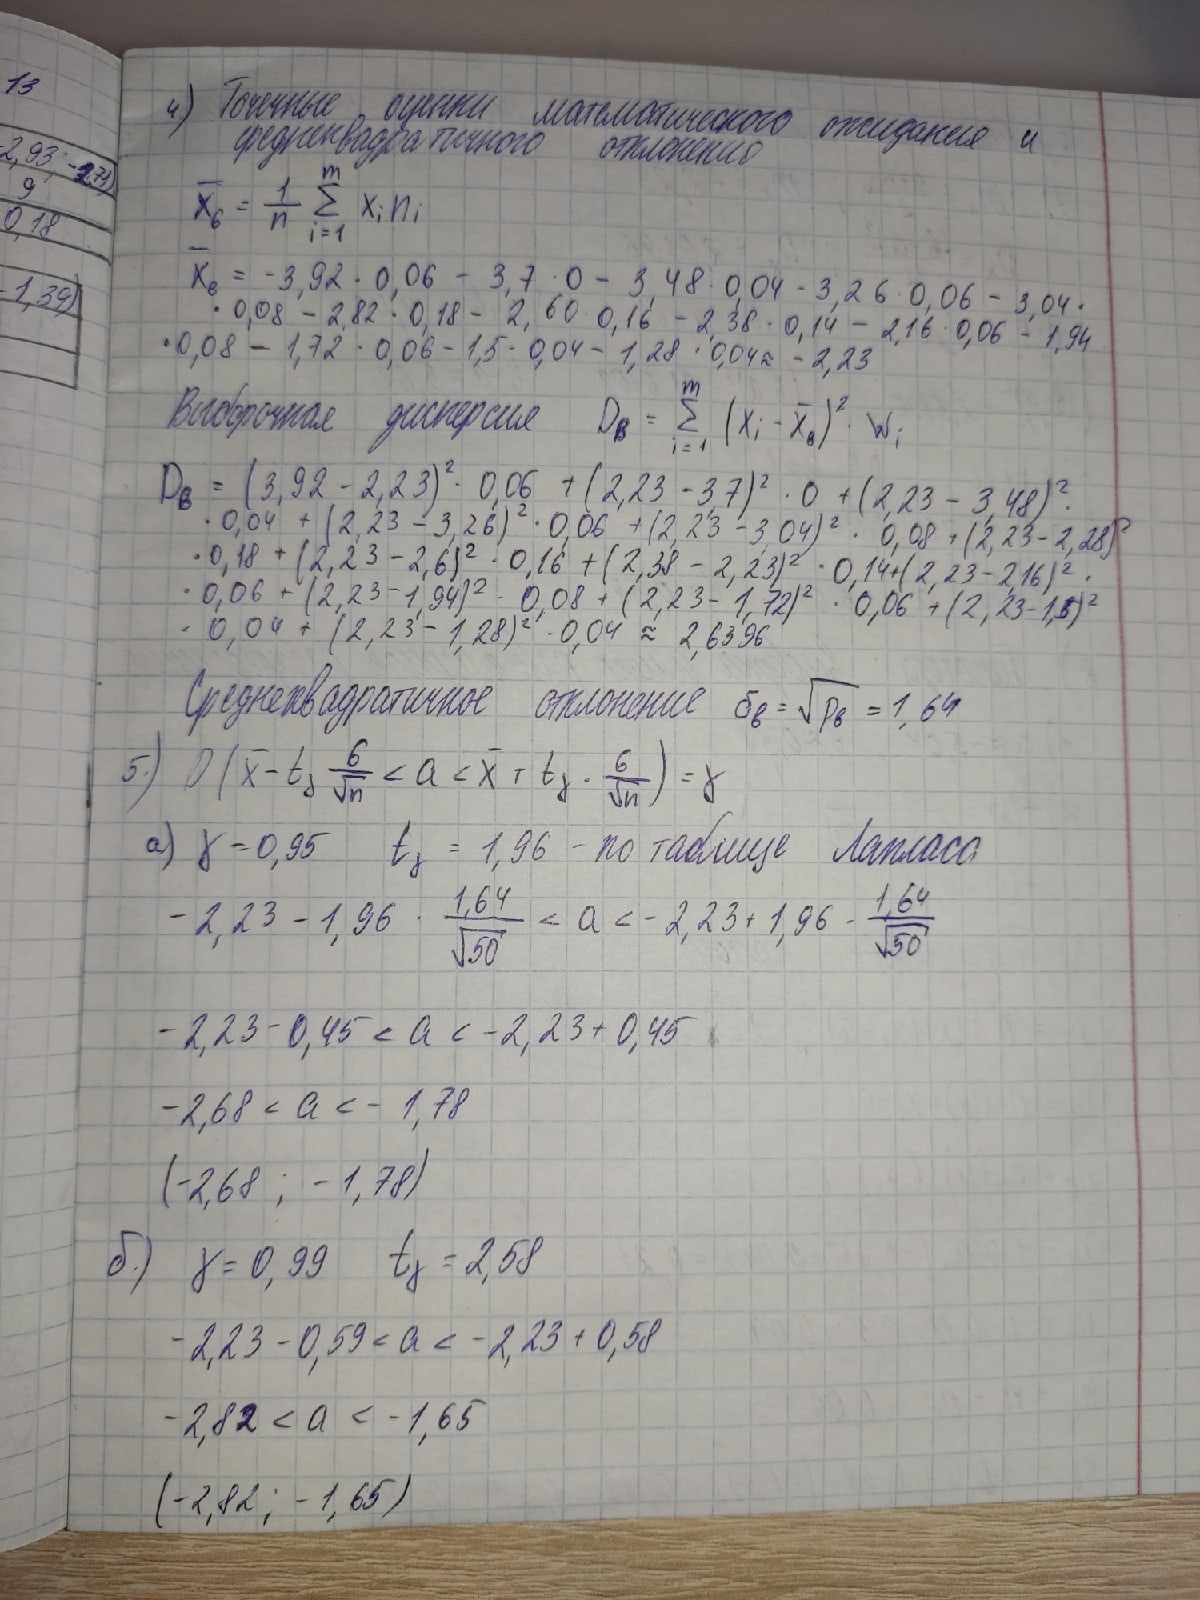 13
-2,93; -2,71)
9
0,18
-1,39)
4) Точечные оценки математического ожидания и
среднеквадратичного отклонения
x̄в = 1/n ∑ᵢ₌₁ᵐ xᵢ nᵢ
x̄в = -3,92 · 0,06 - 3,7 · 0 - 3,48 · 0,04 - 3,26 · 0,06 - 3,04 ·
· 0,08 - 2,82 · 0,18 - 2,60 · 0,16 - 2,38 · 0,14 - 2,16 · 0,06 - 1,94
· 0,08 - 1,72 · 0,06 - 1,5 · 0,04 - 1,28 · 0,04 ≈ -2,23
Выборочная дисперсия Dв = ∑ᵢ₌₁ᵐ (xᵢ - x̄в)² · wᵢ
Dв = (3,92 - 2,23)² · 0,06 + (2,23 - 3,7)² · 0 + (2,23 - 3,48)² ·
· 0,04 + (2,23 - 3,26)² · 0,06 + (2,23 - 3,04)² · 0,08 + (2,23 - 2,28)²
· 0,18 + (2,23 - 2,6)² · 0,16 + (2,38 - 2,23)² · 0,14 + (2,23 - 2,16)² ·
· 0,06 + (2,23 - 1,94)² · 0,08 + (2,23 - 1,72)² · 0,06 + (2,23 - 1,5)²
· 0,04 + (2,23 - 1,28)² · 0,04 ≈ 2,6396
Среднеквадратичное отклонение бв = √Dв = 1,64
5.) P(x̄ - tγ б/√n < a < x̄ + tγ · б/√n) = γ
а) γ = 0,95 tγ = 1,96 - по таблице Лапласа
-2,23 - 1,96 · 1,64/√50 < a < -2,23 + 1,96 · 1,64/√50
-2,23 - 0,45 < a < -2,23 + 0,45
-2,68 < a < -1,78
(-2,68 ; -1,78)
б.) γ = 0,99 tγ = 2,58
-2,23 - 0,59 < a < -2,23 + 0,58
-2,82 < a < -1,65
(-2,82 ; -1,65)